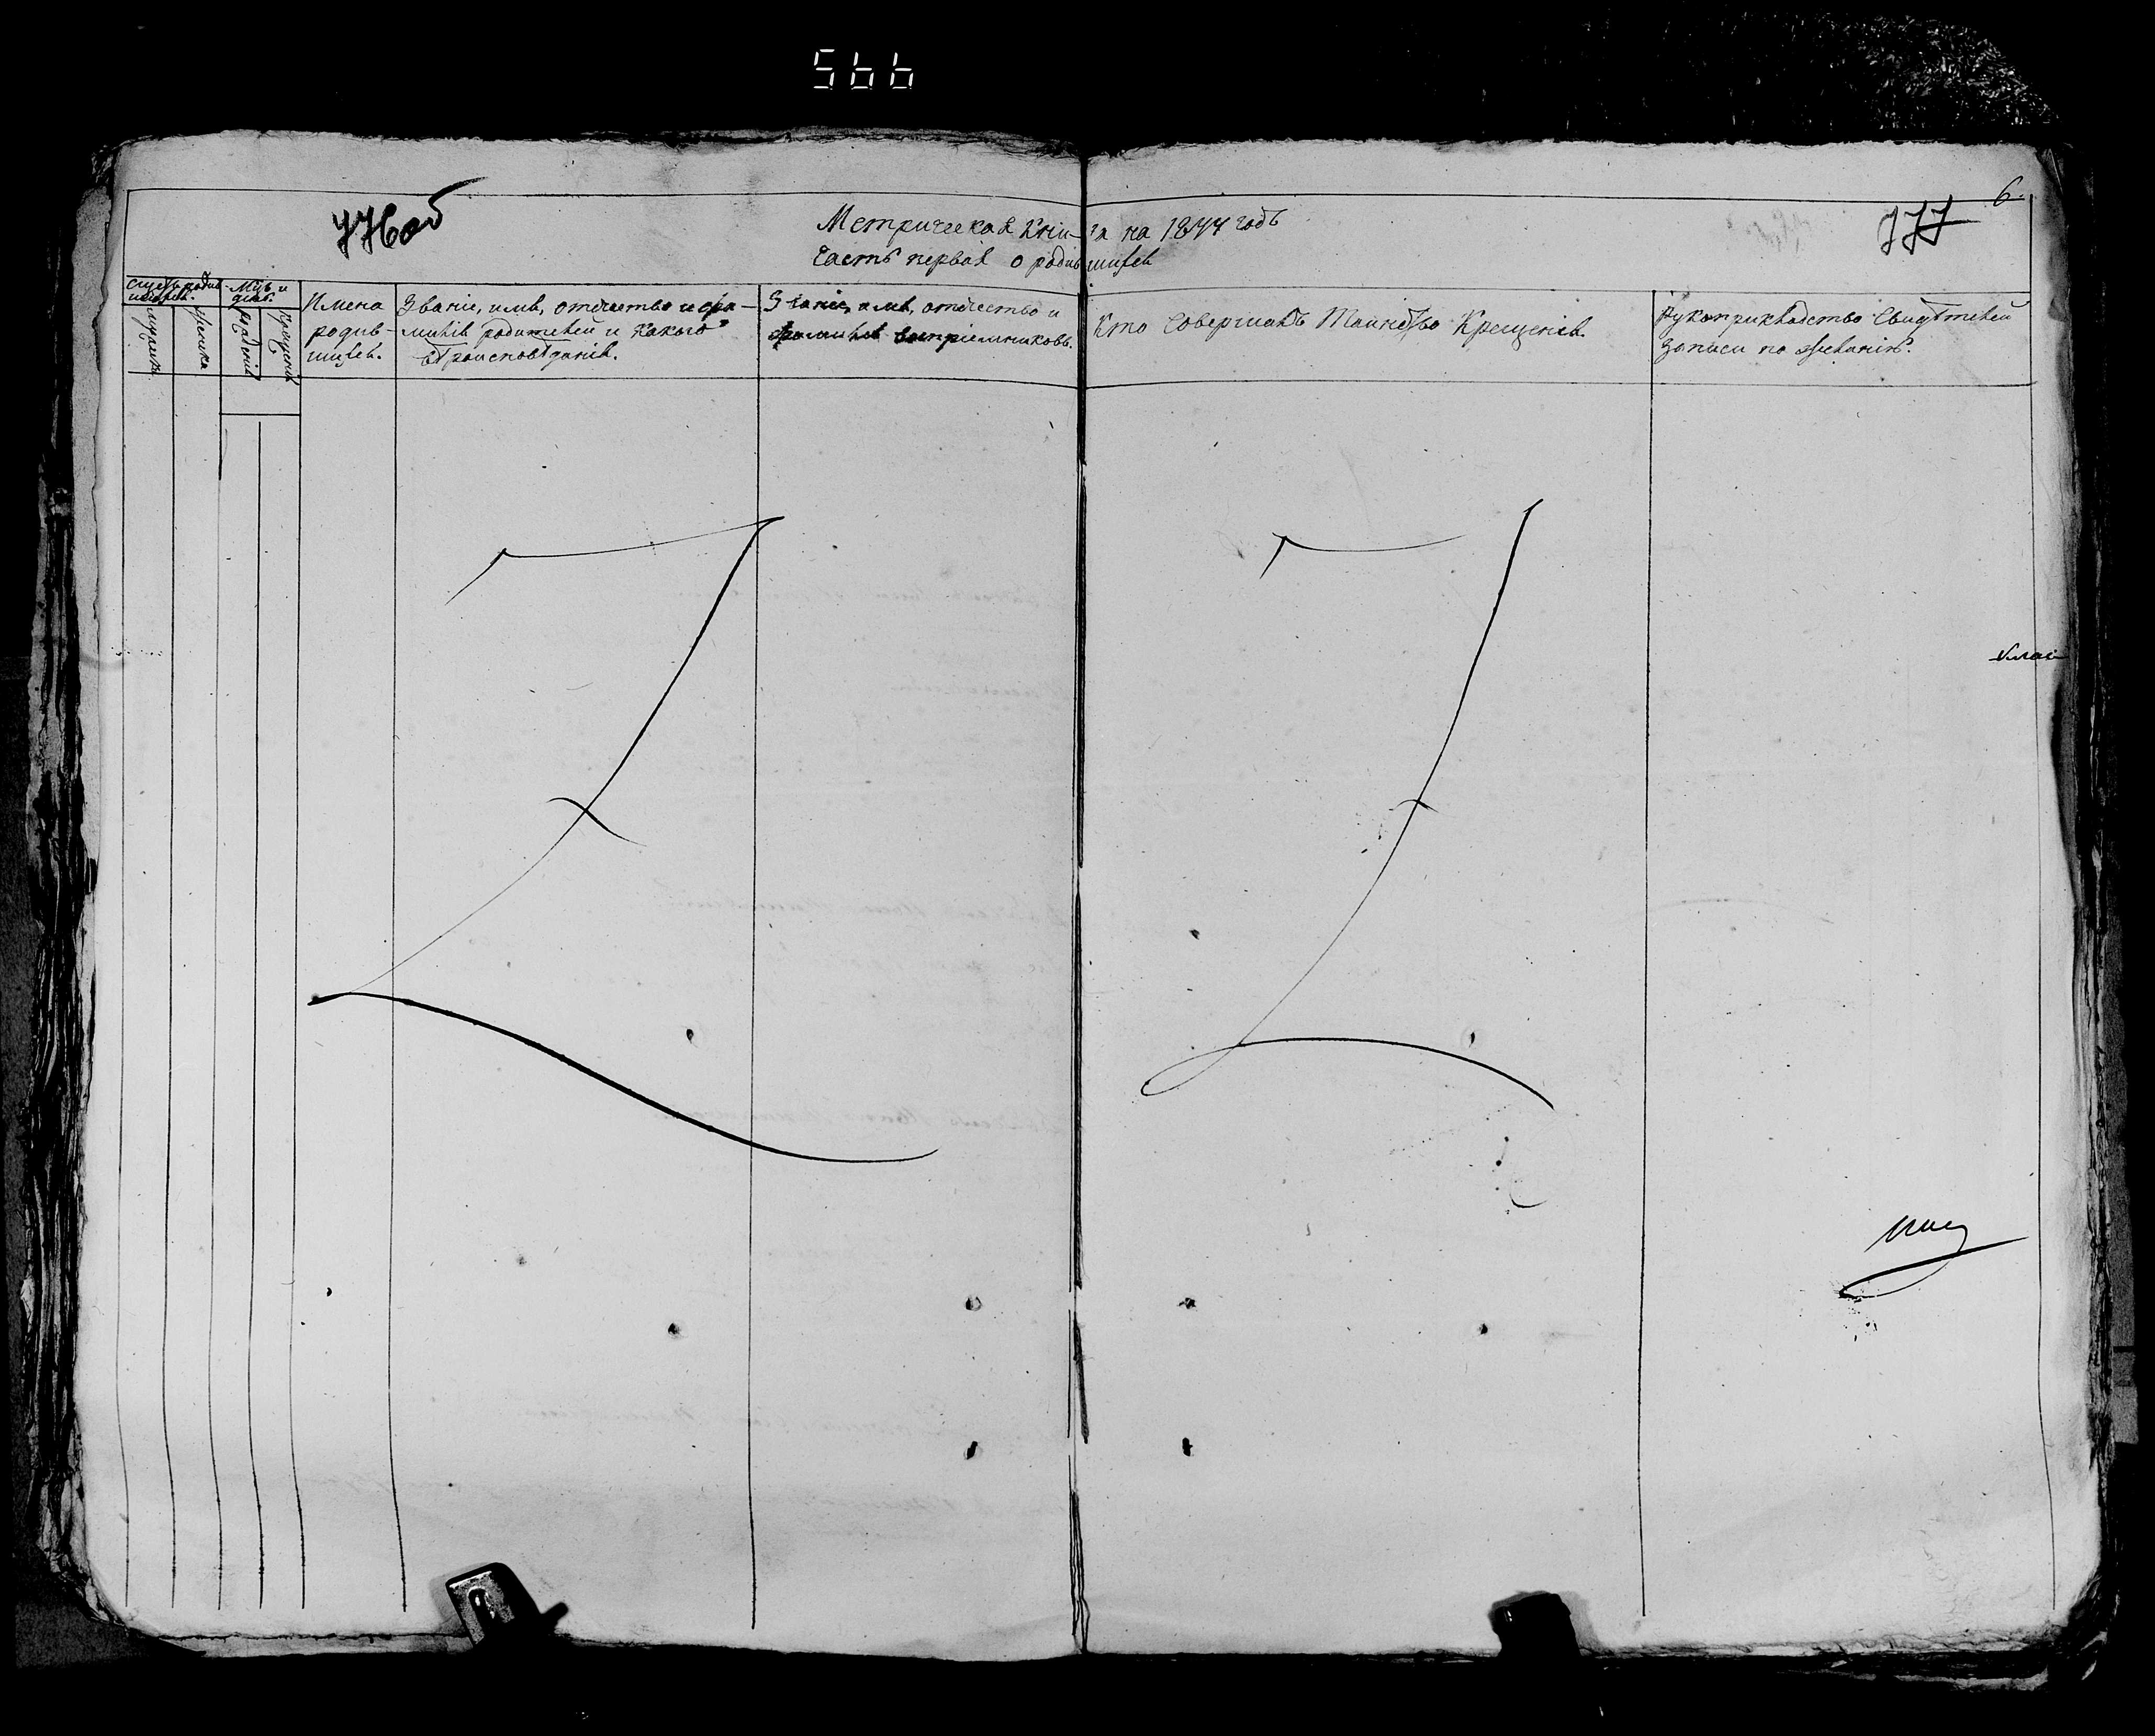 566
776об
777
6.
Метрическая книга на 1844 годъ
Часть первая о родившихся
Счетъ родившихся.
Мѣц. и день.
мужеска
женска
рожденія
крещенія
Имена родившихся.
Званіе, имя, отчество и фамилія родителей и какого вѣроисповѣданія.
Званіе, имя, отчество и фамилія воспріемниковъ.
Кто совершалъ Таинство Крещенія.
Рукоприкладство свидѣтелей записи по желанію.